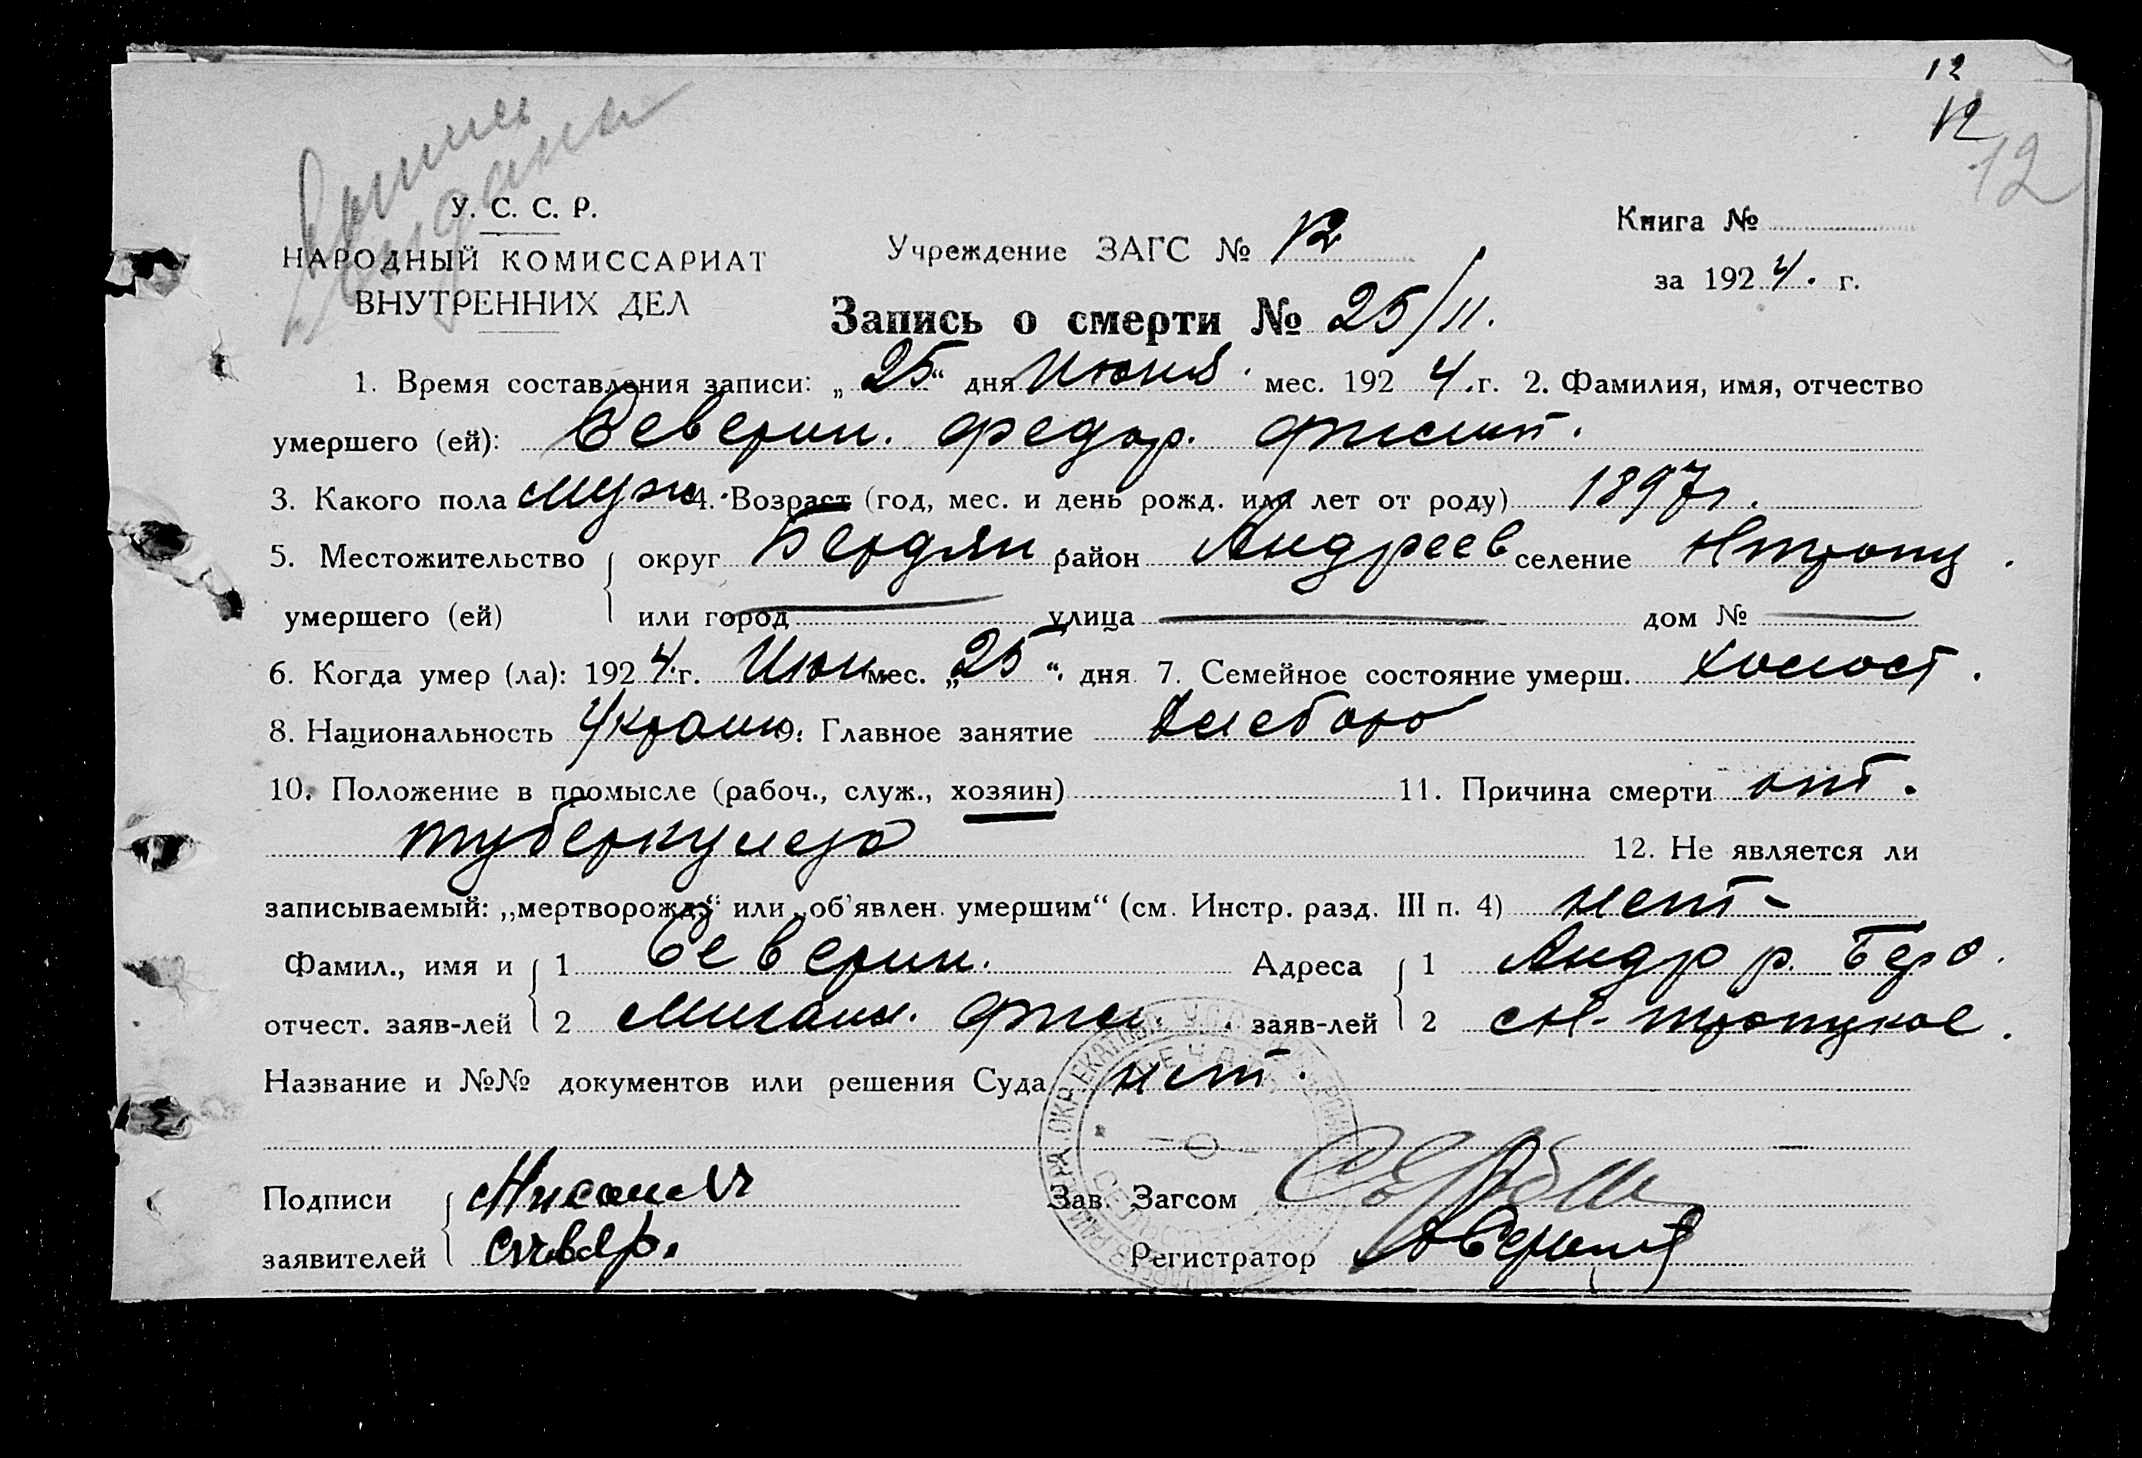 12
12
12
У. С. С. Р.
НАРОДНЫЙ КОМИССАРИАТ
ВНУТРЕННИХ ДЕЛ
Учреждение ЗАГС № 12
Книга №
за 1924. г.
Запись о смерти № 25/11.
1. Время составления записи: „25“ дня Июня мес. 1924.г. 2. Фамилия, имя, отчество
умершего (ей): Северин. Федор.
3. Какого пола муж 4. Возраст (год, мес. и день рожд. или лет от роду) 1897г.
5. Местожительство округ Бердян район Андреев селение
умершего (ей) или город улица дом №
6. Когда умер (ла): 1924.г. Июн мес. „25“. дня 7. Семейное состояние умерш. холост.
8. Национальность Украин 9. Главное занятие хлебороб
10. Положение в промысле (рабоч., служ., хозяин) 11. Причина смерти от.
туберкулеза
12. Не является ли
записываемый: „мертворожд.“ или „об’явлен. умершим“ (см. Инстр. разд. III п. 4) нет -
Фамил., имя и 1 Северин. Адреса 1 Андр р. Берд.
отчест. заяв-лей 2 заяв-лей 2
Название и №№ документов или решения Суда нет.
Подписи Зав. Загсом
заявителей Регистратор